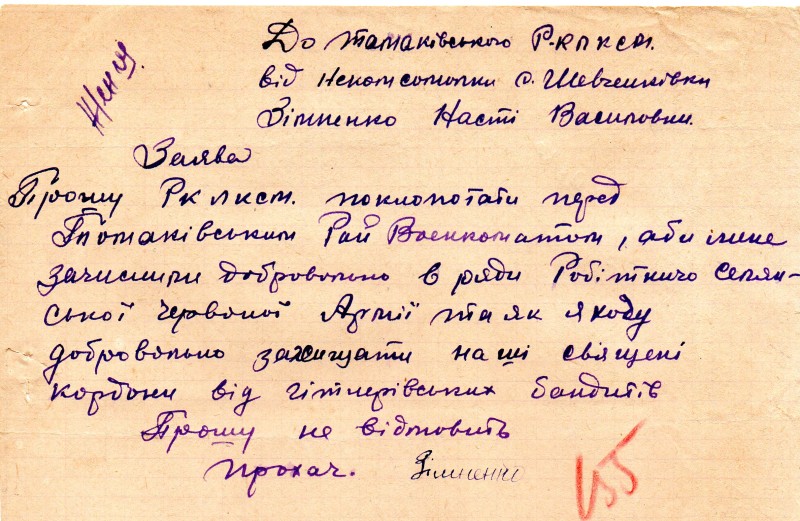 До Тамаківського Р-клксм.
від некомсомолки с. Шевченківки
Зімненко Насті Василовки.
Заява
Прошу Рк лксм. поклопотати перед
Томаківським Рай Военкоматом, аби мене
зачислили добровольно в ряди Робітничо Селян-
ської Червоної Армії та як я ходу
добровольно захищати наші священі
кордони від гітлерівських бандитів
Прошу не відмовить
Прохач. Зімненко
155